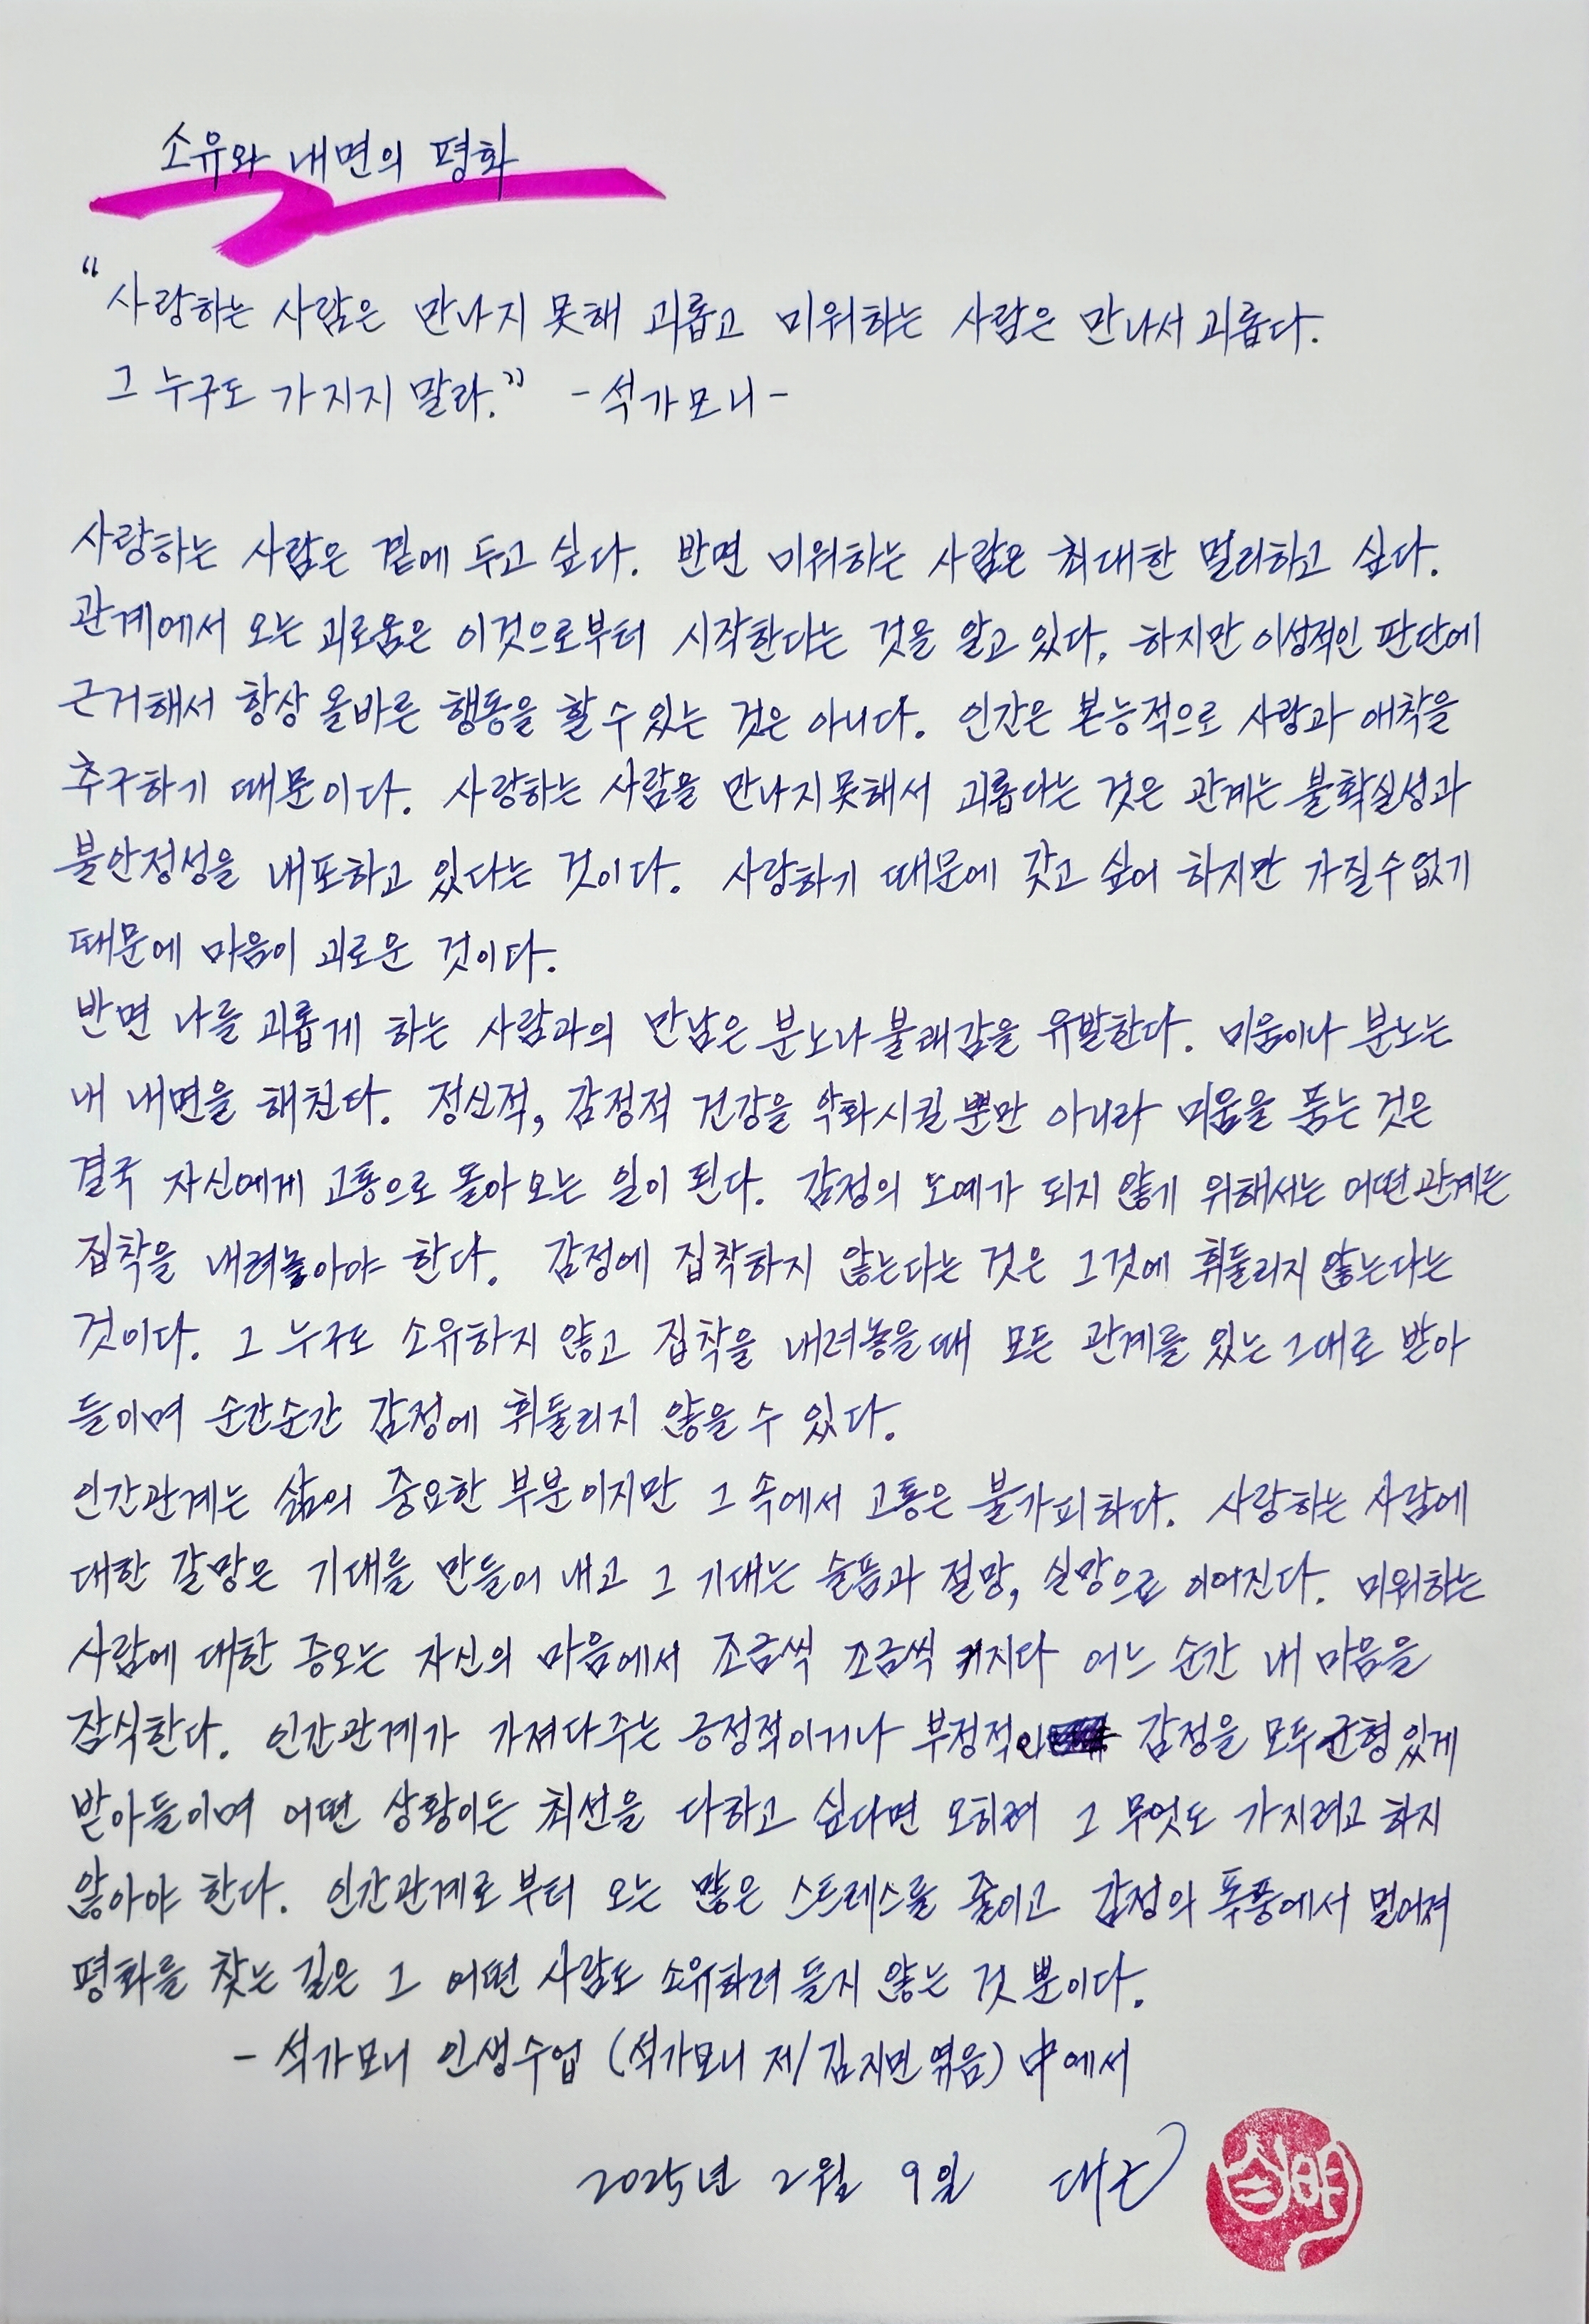 소유와 내면의 평화
"사랑하는 사람은 만나지 못해 괴롭고 미워하는 사람은 만나서 괴롭다.
그 누구도 가지지 말라." -석가모니-
사랑하는 사람은 곁에 두고 싶다. 반면 미워하는 사람은 최대한 멀리하고 싶다.
관계에서 오는 괴로움은 이것으로부터 시작한다는 것을 알고 있다. 하지만 이성적인 판단에
근거해서 항상 올바른 행동을 할 수 있는 것은 아니다. 인간은 본능적으로 사랑과 애착을
추구하기 때문이다. 사랑하는 사람을 만나지 못해서 괴롭다는 것은 관계는 불확실성과
불안정성을 내포하고 있다는 것이다. 사랑하기 때문에 갖고 싶어 하지만 가질 수 없기
때문에 마음이 괴로운 것이다.
반면 나를 괴롭게 하는 사람과의 만남은 분노나 불쾌감을 유발한다. 미움이나 분노는
내 내면을 해친다. 정신적, 감정적 건강을 악화시킬 뿐만 아니라 미움을 품는 것은
결국 자신에게 고통으로 돌아오는 일이 된다. 감정의 노예가 되지 않기 위해서는 어떤 관계든
집착을 내려놓아야 한다. 감정에 집착하지 않는다는 것은 그것에 휘둘리지 않는다는
것이다. 그 누구도 소유하지 않고 집착을 내려놓을 때 모든 관계를 있는 그대로 받아
들이며 순간순간 감정에 휘둘리지 않을 수 있다.
인간관계는 삶의 중요한 부분이지만 그 속에서 고통은 불가피하다. 사랑하는 사람에
대한 갈망은 기대를 만들어 내고 그 기대는 슬픔과 절망, 실망으로 이어진다. 미워하는
사람에 대한 증오는 자신의 마음에서 조금씩 조금씩 커지다 어느 순간 내 마음을
잠식한다. 인간관계가 가져다 주는 긍정적이거나 부정적인 감정을 모두 균형 있게
받아들이며 어떤 상황이든 최선을 다하고 싶다면 오히려 그 무엇도 가지려고 하지
않아야 한다. 인간관계로부터 오는 많은 스트레스를 줄이고 감정의 폭풍에서 멀어져
평화를 찾는 길은 그 어떤 사람도 소유하려 들지 않는 것 뿐이다.
- 석가모니 인생수업 (석가모니 저/김지민 엮음) 中에서
2025년 2월 9일 대근